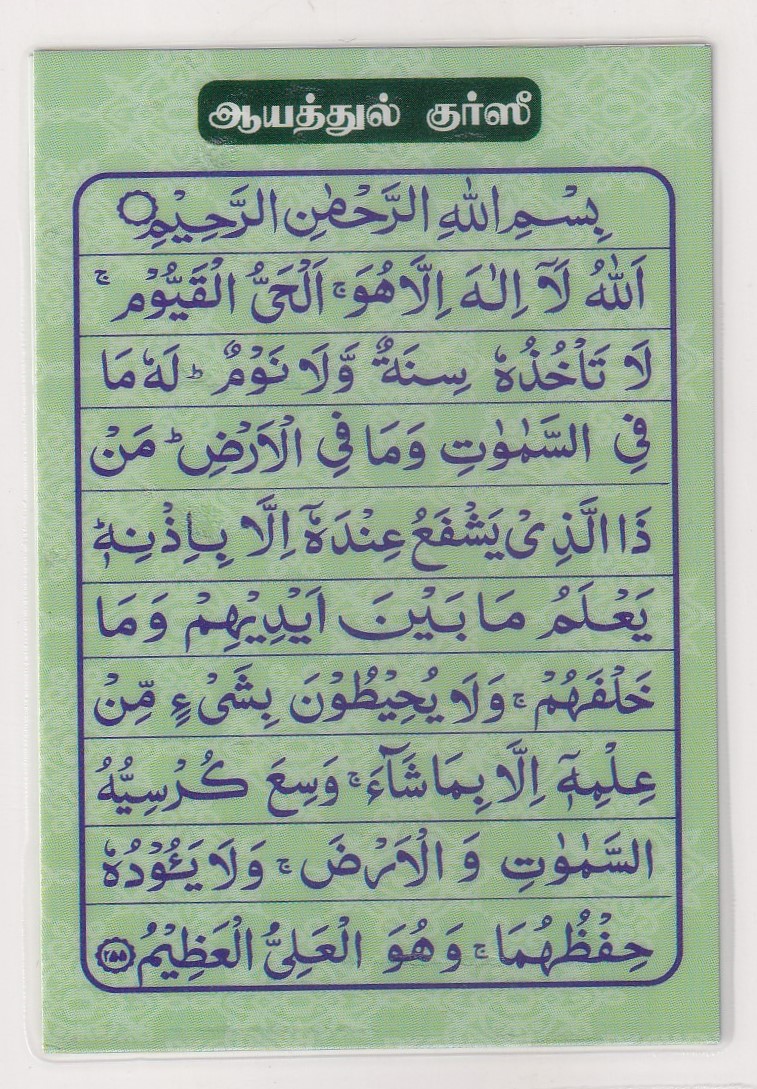 ஆயத்துல் குர்ஸீ
بِسْمِ اللّٰهِ الرَّحْمٰنِ الرَّحِيْمِ ۝
اَللّٰهُ لَآ اِلٰهَ اِلَّا هُوَ ۚ اَلْحَىُّ الْقَيُّوْمُ ۚ
لَا تَاْخُذُهٗ سِنَةٌ وَّلَا نَوْمٌ ؕ لَهٗ مَا
فِى السَّمٰوٰتِ وَمَا فِى الْاَرْضِ ؕ مَنْ
ذَا الَّذِىْ يَشْفَعُ عِنْدَهٗٓ اِلَّا بِاِذْنِهٖ ؕ
يَعْلَمُ مَا بَيْنَ اَيْدِيْهِمْ وَمَا
خَلْفَهُمْ ۚ وَلَا يُحِيْطُوْنَ بِشَىْءٍ مِّنْ
عِلْمِهٖٓ اِلَّا بِمَا شَآءَ ۚ وَسِعَ كُرْسِيُّهُ
السَّمٰوٰتِ وَ الْاَرْضَ ۚ وَلَا يَـُٔوْدُهٗ
حِفْظُهُمَا ۚ وَهُوَ الْعَلِىُّ الْعَظِيْمُ ۝۲۵۵